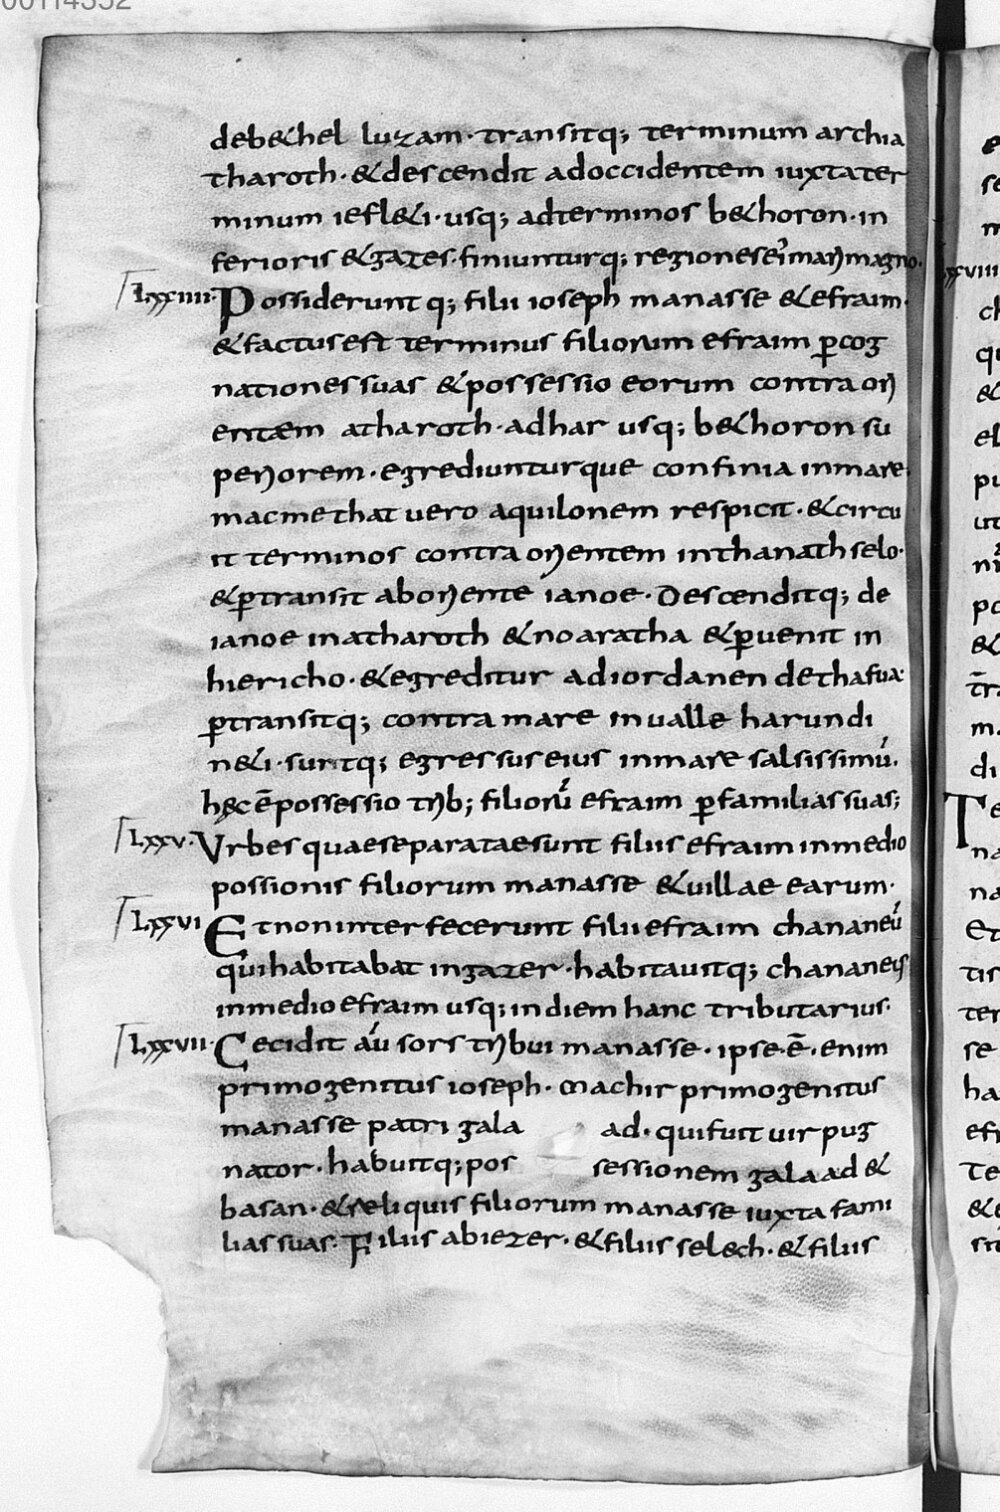 00114352
deb&hel luzam · transitq; terminum archia
tharoth · & descendit adoccidentem iuxtater
minum iefl&i · usq; adterminos b&horon · in
ferioris & gazes · finiunturq; regiones ei marimagno ·
LXXIIII · Possiderunt q; filii ioseph manasse & efraim ·
& factus est terminus filiorum efraim ꝑcog
nationes suas & possessio eorum contra ori
entæm atharoth · adhar usq; b&horon su
periorem · egrediunturque confinia inmare
macmethat uero aquilonem respicit · & circu
it terminos contra orientem inthanath selo ·
& ꝑtransit aboriente ianoe · Descenditq; de
ianoe inatharoth & noaratha & ꝑuenit in
hiericho · & egreditur adiordanen dethafua ·
ꝑtransitq; contra mare inualle harundi
n&i · suntq; egressus eius inmare salsissimū .
hęc ē possessio trib; filiorū efraim ꝑfamilias suas;
LXXV · Vrbes quae separatae sunt filiis efraim inmedio
possionis filiorum manasse & uillae earum ·
LXXVI Et non interfecerunt filii efraim chananeū
qui habitabat ingazer · habitauitq; chananeis
inmedio efraim usq; indiem hanc tributarius ·
LXXVII · Cecidit aū sors tribui manasse · ipse · ē · enim
primogenitus ioseph · machir primogenitus
manasse patri gala ad · qui fuit uir pug
nator · habuitq; pos sessionem galaad &
basan · & reliquis filiorum manasse iuxta fami
lias suas · Filiis abiezer · & filiis selech · & filiis